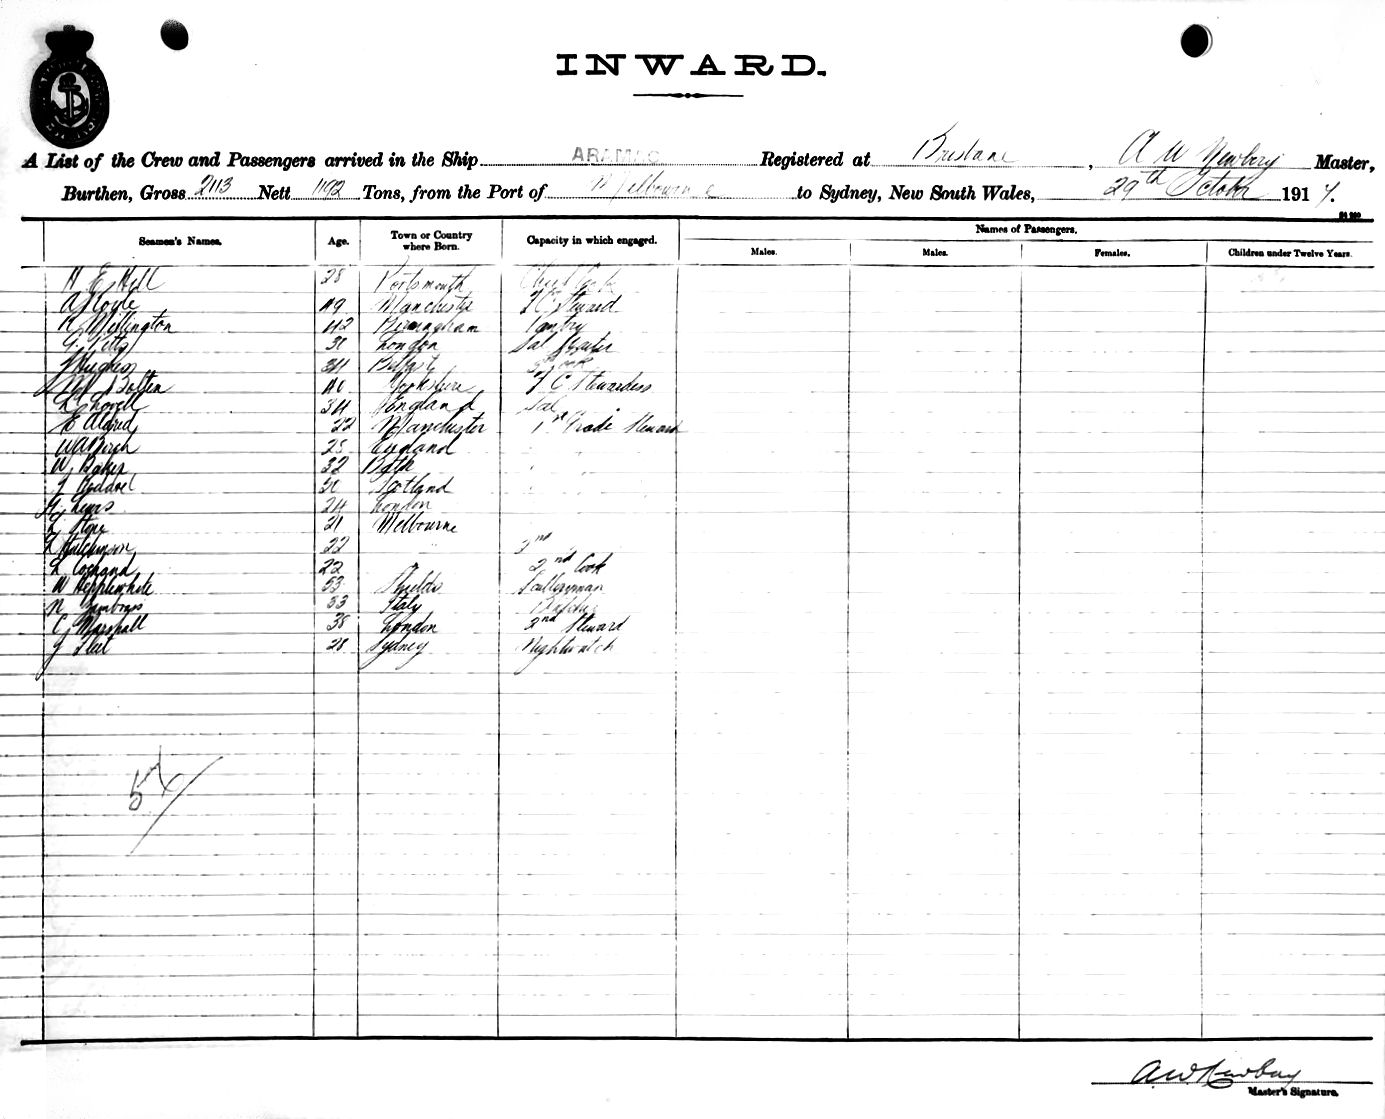 INWARD.
A List of the Crew and Passengers arrived in the Ship ARAMAC Registered at Brisbane, A W Newbery Master,
Burthen, Gross 2113 Nett 1192 Tons, from the Port of Melbourne to Sydney, New South Wales, 29th October 1917.
Seamen's Names. Age. Town or Country where Born. Capacity in which engaged. Names of Passengers.
Males. Males. Females. Children under Twelve Years.
H E Hill 28 Portsmouth Chief Cook
A Royle 49 Manchester F C Steward
Millington 42 Birmingham Pantry
G. Potts London Sal Waiter
J Hughes 34 Belfast Cook
Bolten 40 Yorkshire F C Stewardess
Shovell 34 England Sal
E Aldred 22 Manchester 1st Grade Steward
W A Birch 25 England
W Baker 32 Bath
J Scotland
G Lewis 24 London
Stone 21 Melbourne
Hutchinson 22 " 2nd
22 2nd Cook
W Hepplewhite 53 Shields Sculleryman
N 33 Italy Butcher
C Marshall 38 London 2nd Steward
J Fleet 28 Sydney Nightwatch
57
A. W. Newbery
Master's Signature.